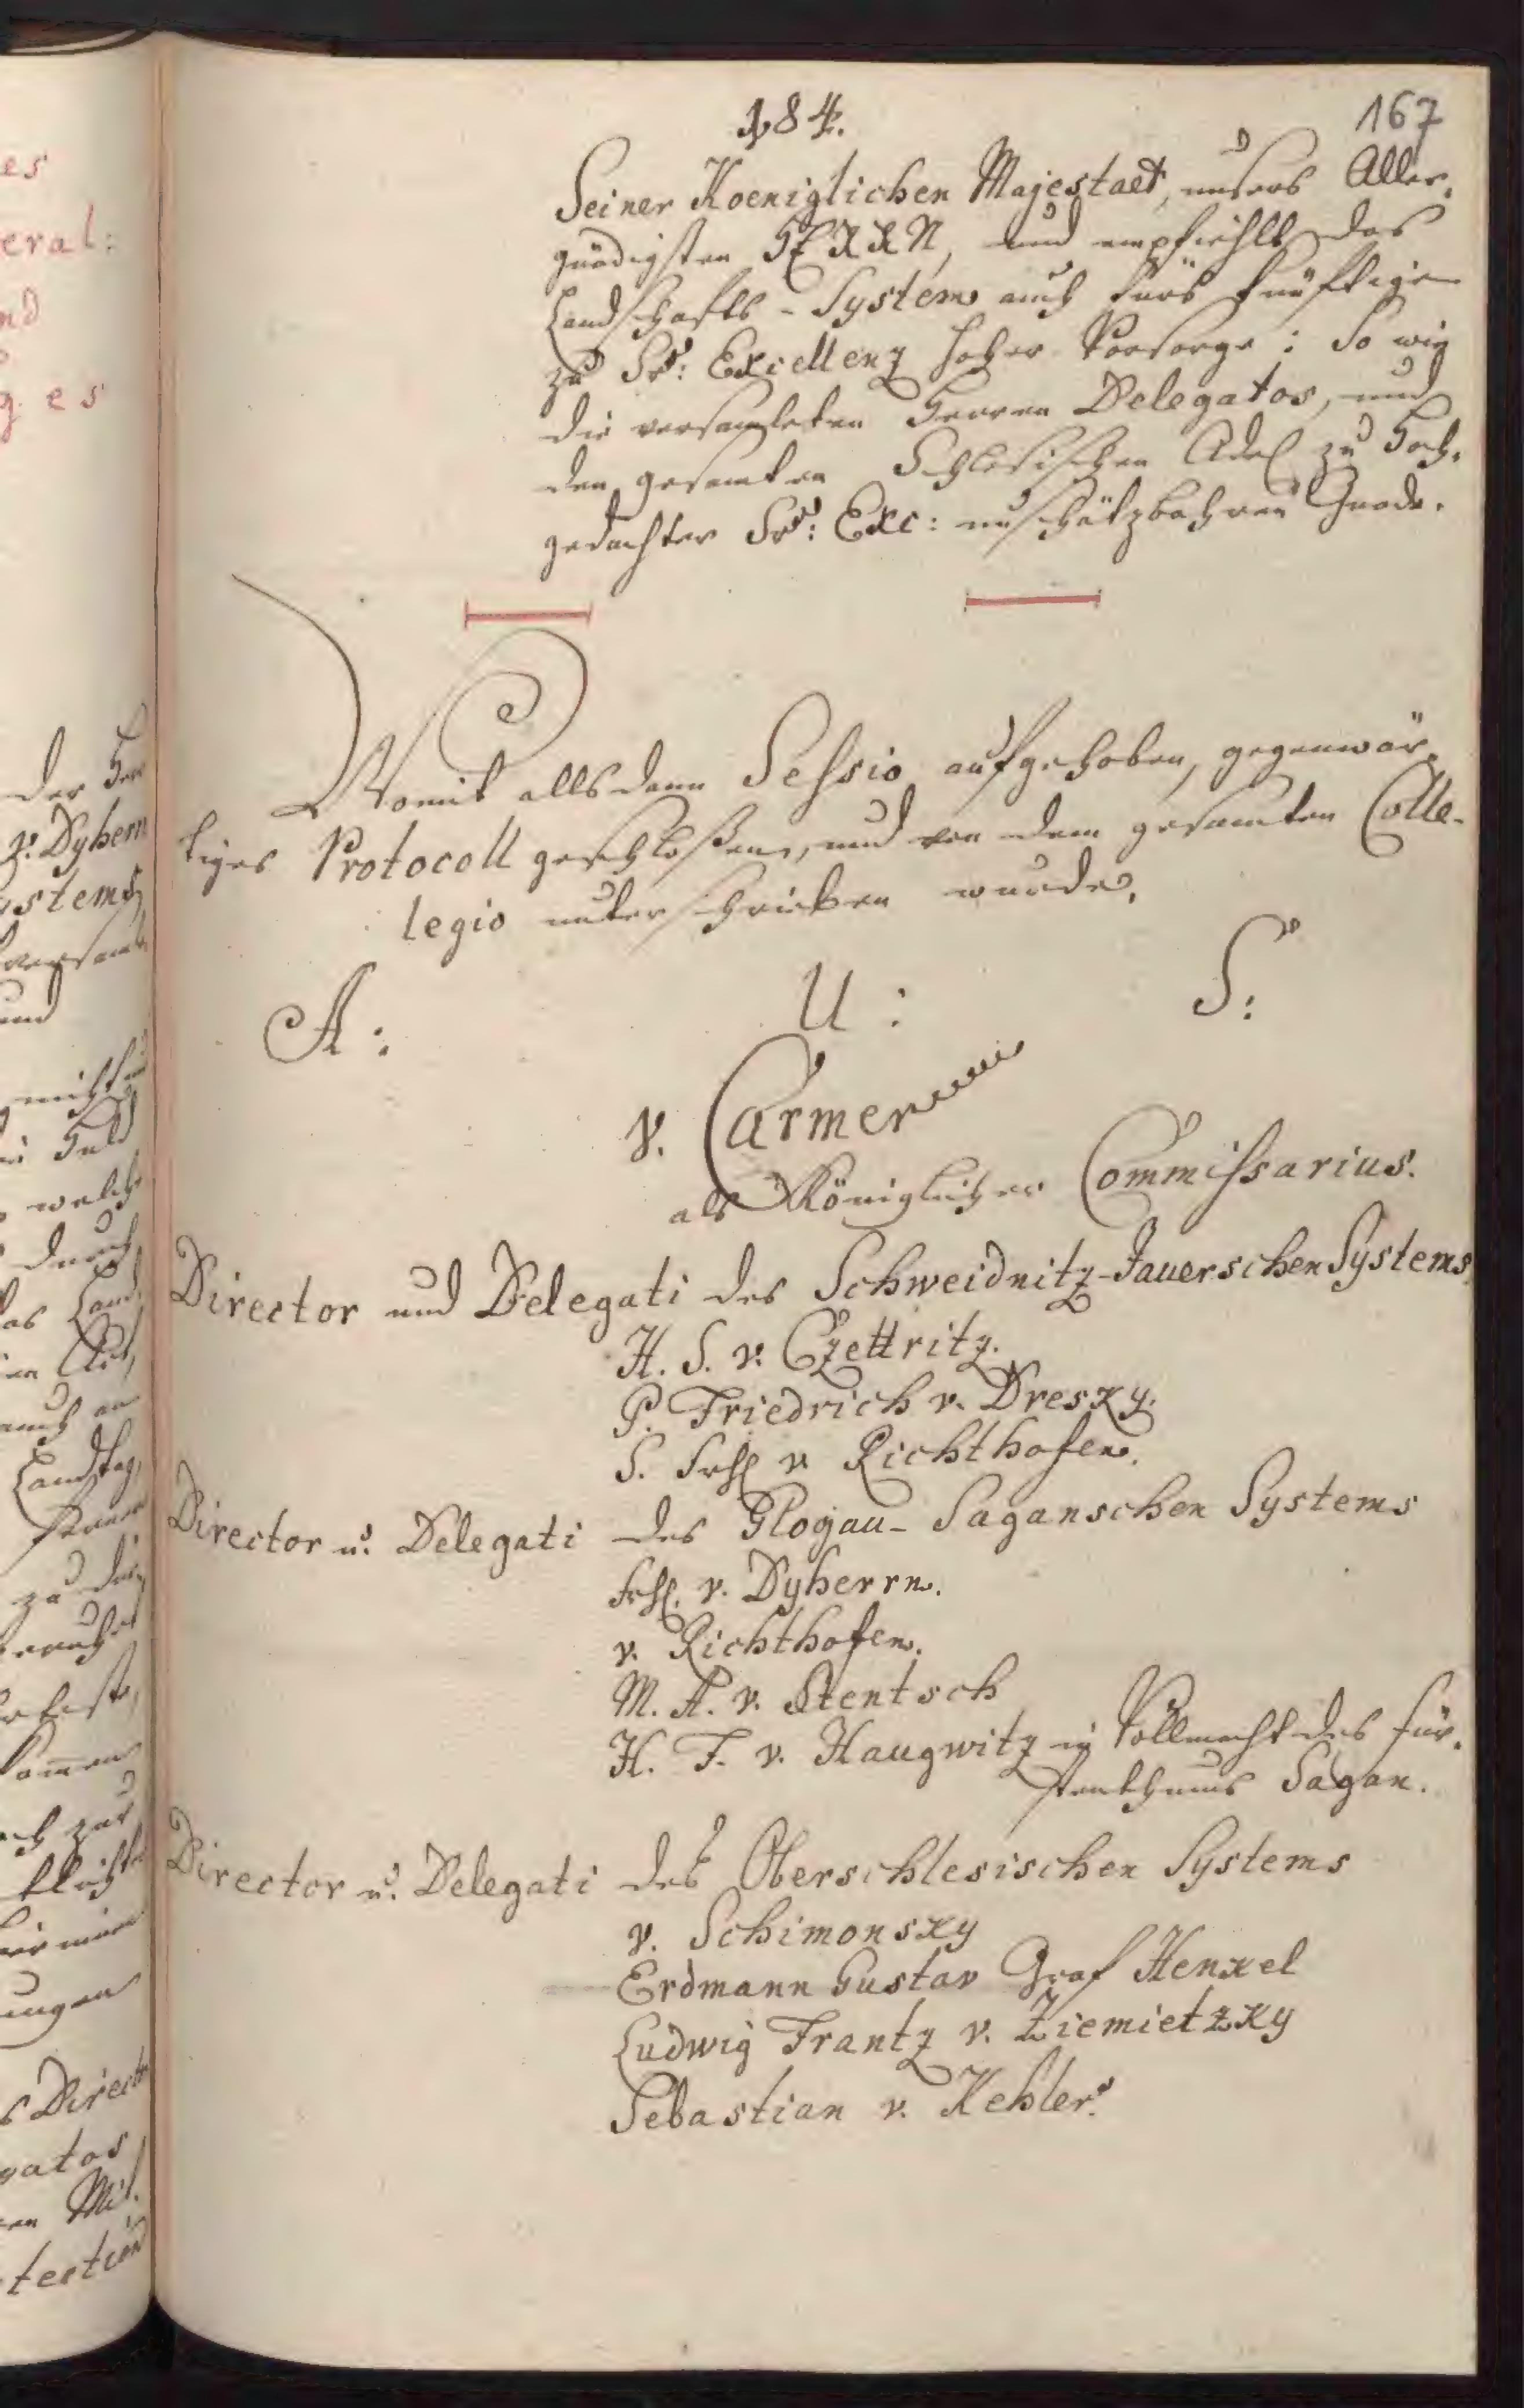 es
eral:
nd
g. es
der Herr
v. Dyhern
ystems
versam
und
welche
durch
das Land
auch an
Landtag,
zu die
kommen
ch zur
ungen
s Direct
gatos
en Mit.
tection
184.
167
Seiner Koeniglichen Majestaet, unsers Aller,
gnädigsten HERRN, und empfiehlt das
Landschafts-System auch fürs künftige
zu Sr: Excellenz hoher Vorsorge: So wie
die versamleten Herren Delegatos, und
den gesamten Schlesischen Adel zu Hoch,
gedachter Sr: Exc: unschätzbahren Gnade.
Womit allsdann Sessio aufgehoben, gegenwär,
tiges Protocoll geschloßen, und von dem gesamten Colle-
legio unterschrieben wurde.
A: U: S:
v. Carmer
als Königlicher Commissarius.
Director und Delegati des Schweidnitz-Jauerschen Systems
H. S. v. Czettritz.
P. Friedrich v. Dresky.
S. Frh v Richthofen.
Director u. Delegati des Glogau-Saganschen Systems
Frh. v. Dyherrn.
v. Richthofen.
M. A. v. Stentsch
H. F. v. Haugwitz in Vollmacht des Für,
stenthums Sagan.
Director u. Delegati des Oberschlesischen Systems
v. Schimonsky
Erdmann Gustav Graf Henkel
Ludwig Frantz v. Ziemietzky
Sebastian v. Kehler.